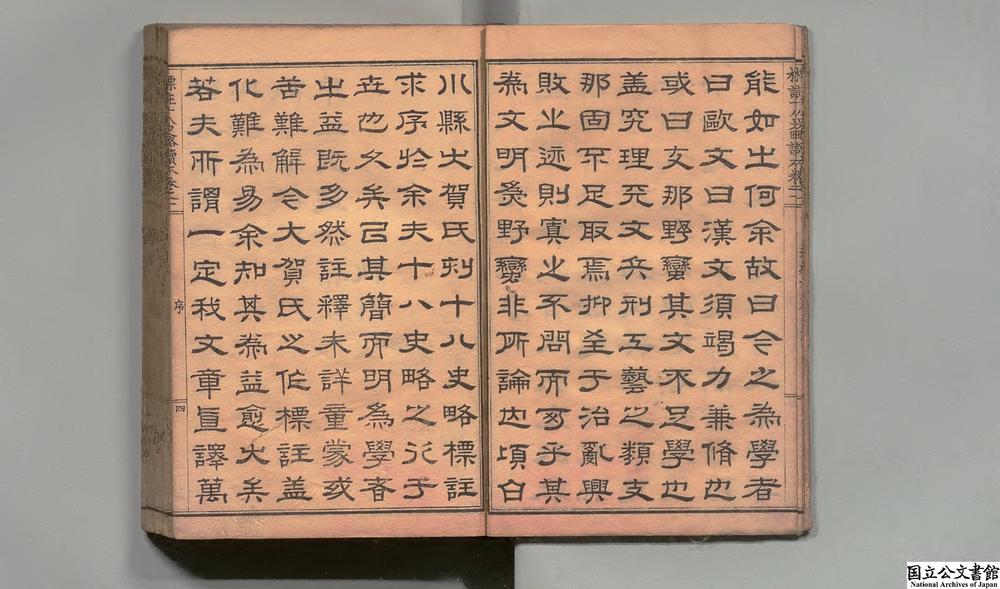 能如之何余故曰今之為學者
曰歐文曰漢文須竭力兼脩也
或曰支那野蠻其文不足學也
盖究理天文兵刑工藝之類支
那固不足取焉抑至于治亂興
敗之迹則寘之不問而可乎其
為文明為野蠻非所論也頃白
川縣大賀氏刻十八史略標註
求序於余夫十八史略之行于
世也久矣以其簡而明為學者
之益既多然註釋未詳童蒙或
苦難解今大賀氏之作標註盖
化難為易余知其為益愈大矣
若夫所謂一定我文章直譯萬
序
四
国立公文書館
National Archives of Japan